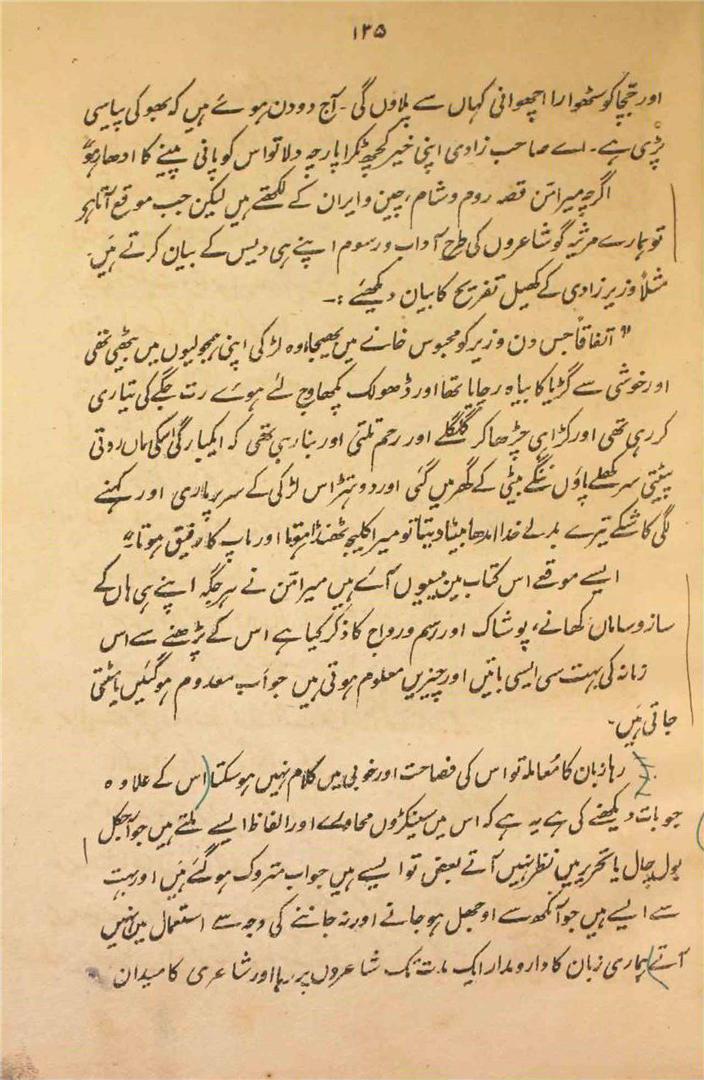 ۱۲۵
اور جچا کو ستھوارا اچھوانی کہاں سے پلاؤں گی۔ آج دو دن ہوئے ہیں کہ بھوکی پیاسی
پڑی ہے۔ اے صاحب زادی اپنی خیر کچھ ٹکڑا پارچہ دلا تو اس کو پانی پینے کا ادھار ہو"
اگرچہ میرامن قصہ روم و شام، چین و ایران کے لکھتے ہیں لیکن جب موقع آتا ہو
تو ہمارے مرثیہ گو شاعروں کی طرح آداب و رسوم اپنے ہی دیس کے بیان کرتے ہیں۔
مثلاً وزیر زادی کے کھیل تفریح کا بیان دیکھئے :۔
"اتفاقاً جس دن وزیر کو محبوس خانے میں بھیجا وہ لڑکی اپنی ہمجولیوں میں بیٹھی تھی
اور خوشی سے گڑیا کا بیاہ رچایا تھا اور ڈھولک پکھاوج لئے ہوئے رت جگے کی تیاری
کر رہی تھی اور کڑاہی چڑھا کر گلگلے اور رحم تلتی اور بنا رہی تھی کہ ایکبارگی اسکی ماں روتی
پیٹتی سر کھلے پاؤں ننگے بیٹی کے گھر میں گئی اور دو ہتڑ اس لڑکی کے سر پر ماری اور کہنے
لگی کاشکے تیرے بدلے خدا اندھا بیٹا دیتا تو میرا کلیجہ ٹھنڈا ہوتا اور باپ کا رفیق ہوتا"
ایسے موقعے اس کتاب میں بیسیوں آئے ہیں میرامن نے ہر جگہ اپنے ہی ہاں کے
ساز و ساماں کھانے، پوشاک اور رسم و رواج کا ذکر کیا ہے اس کے پڑھنے سے اس
زمانہ کی بہت سی ایسی باتیں اور چیزیں معلوم ہوتی ہیں جو اب معدوم ہو گئیں یا مٹتی
جاتی ہیں۔
رہا زبان کا معاملہ تو اس کی فصاحت اور خوبی میں کلام نہیں ہو سکتا (اس کے علاوہ
جو بات دیکھنے کی ہے یہ ہے کہ اس میں سینکڑوں محاورے اور الفاظ ایسے ملتے ہیں جو آجکل
بول چال یا تحریر میں نظر نہیں آتے بعض تو ایسے ہیں جو اب متروک ہو گئے ہیں اور بہت
سے ایسے ہیں جو آنکھ سے اوجھل ہو جانے اور نہ جاننے کی وجہ سے استعمال میں نہیں
آتے) ہماری زبان کا دارومدار ایک مدت تک شاعروں پر رہا اور شاعری کا میدان